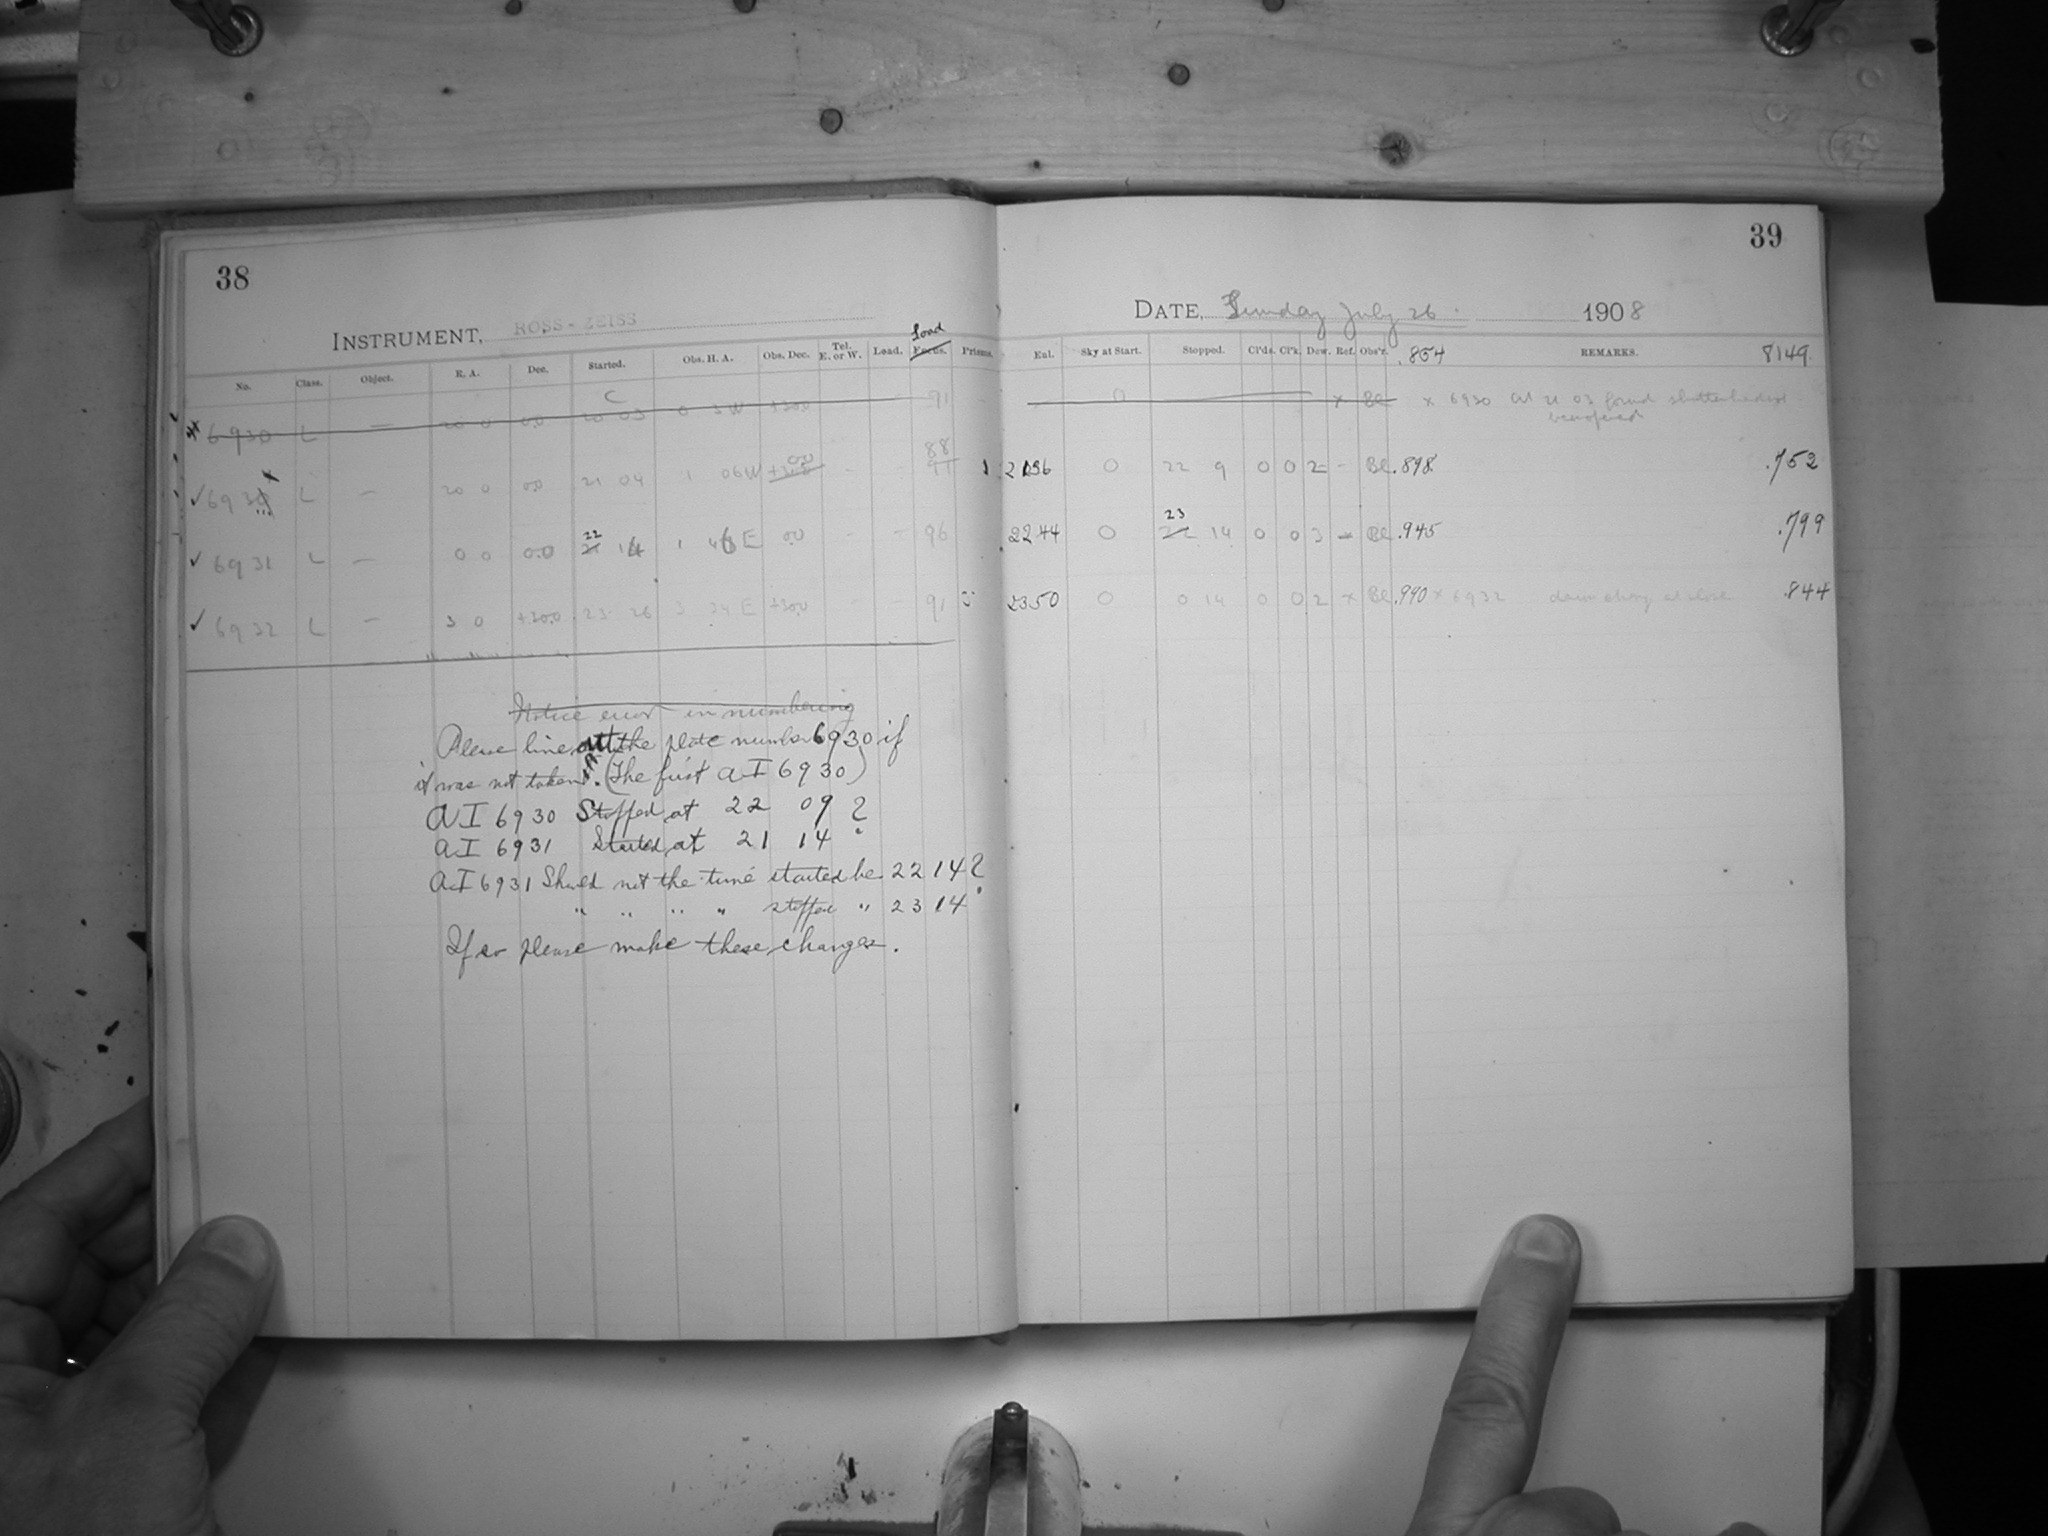 38
39
INSTRUMENT, ROSS-ZEISS
DATE, Sunday July 26. 1908
Load
No. Class. Object. R. A. Dec. Started. Obs. H. A. Obs. Dec. Tel. E. or W. Lead. Focus. Prisms. Eul. Sky at Start. Stopped. Cl'ds. Cl'k. Dew. Ref. Obs'r. .854 REMARKS. 8149
C
6930 L — 20 0 0.0 20 03 0 3 W +30.0 91 0 x BC x 6930 At 21 03 found
✓ 6930 L — 20 0 0.0 21 04 1 06 W +30.0 0.0 - - 91 88 2136 0 22 9 0 0 2 - BC .898 .752
✓ 6931 L — 0 0 0.0 21 22 14 1 46 E 0.0 - - 96 2244 0 22 23 14 0 0 3 - BC .945 .799
✓ 6932 L — 3 0 +30.0 23 26 3 34 E +30.0 - - 91 2350 0 0 14 0 0 2 x BC .990 x 6932 dawn at close .844
Notice error in numbering
Please line out the plate number 6930 if
it was not taken. (The first AI 6930)
AI 6930 Stopped at 22 09 ?
AI 6931 Started at 21 14
AI 6931 Should not the time started be 22 14 ?
" " " " stopped " 23 14
If so please make these changes.